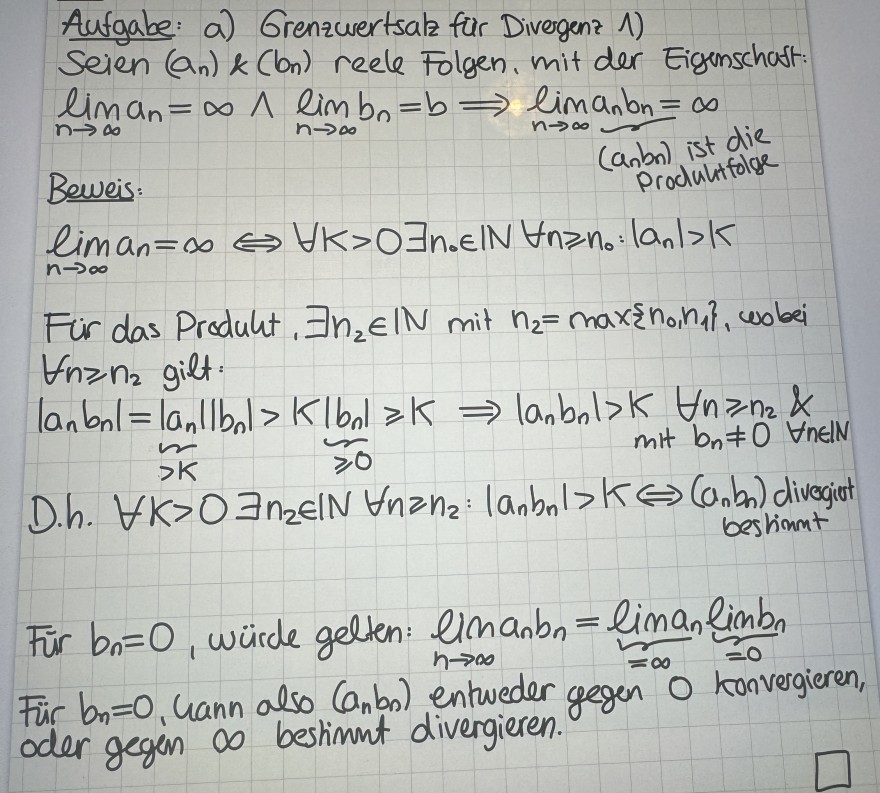 Aufgabe: a) Grenzwertsatz für Divergenz 1)
Seien (aₙ) & (bₙ) reele Folgen, mit der Eigenschaft:
lim aₙ = ∞ ∧ lim bₙ = b ⟹ lim aₙbₙ = ∞
n→∞ n→∞ n→∞
(aₙbₙ) ist die
Produktfolge
Beweis:
lim aₙ = ∞ ⟺ ∀K>0 ∃n₀∈ℕ ∀n≥n₀: |aₙ|>K
n→∞
Für das Produkt, ∃n₂∈ℕ mit n₂=max{n₀,n₁}, wobei
∀n≥n₂ gilt:
|aₙbₙ| = |aₙ||bₙ| > K|bₙ| ≥ K ⟹ |aₙbₙ|>K ∀n≥n₂ &
>K ≥0 mit bₙ≠0 ∀n∈ℕ
D.h. ∀K>0 ∃n₂∈ℕ ∀n≥n₂: |aₙbₙ|>K ⟺ (aₙbₙ) divergiert
bestimmt
Für bₙ=0, würde gelten: lim aₙbₙ = lim aₙ lim bₙ
n→∞ =∞ =0
Für bₙ=0, kann also (aₙbₙ) entweder gegen 0 konvergieren,
oder gegen ∞ bestimmt divergieren.
□